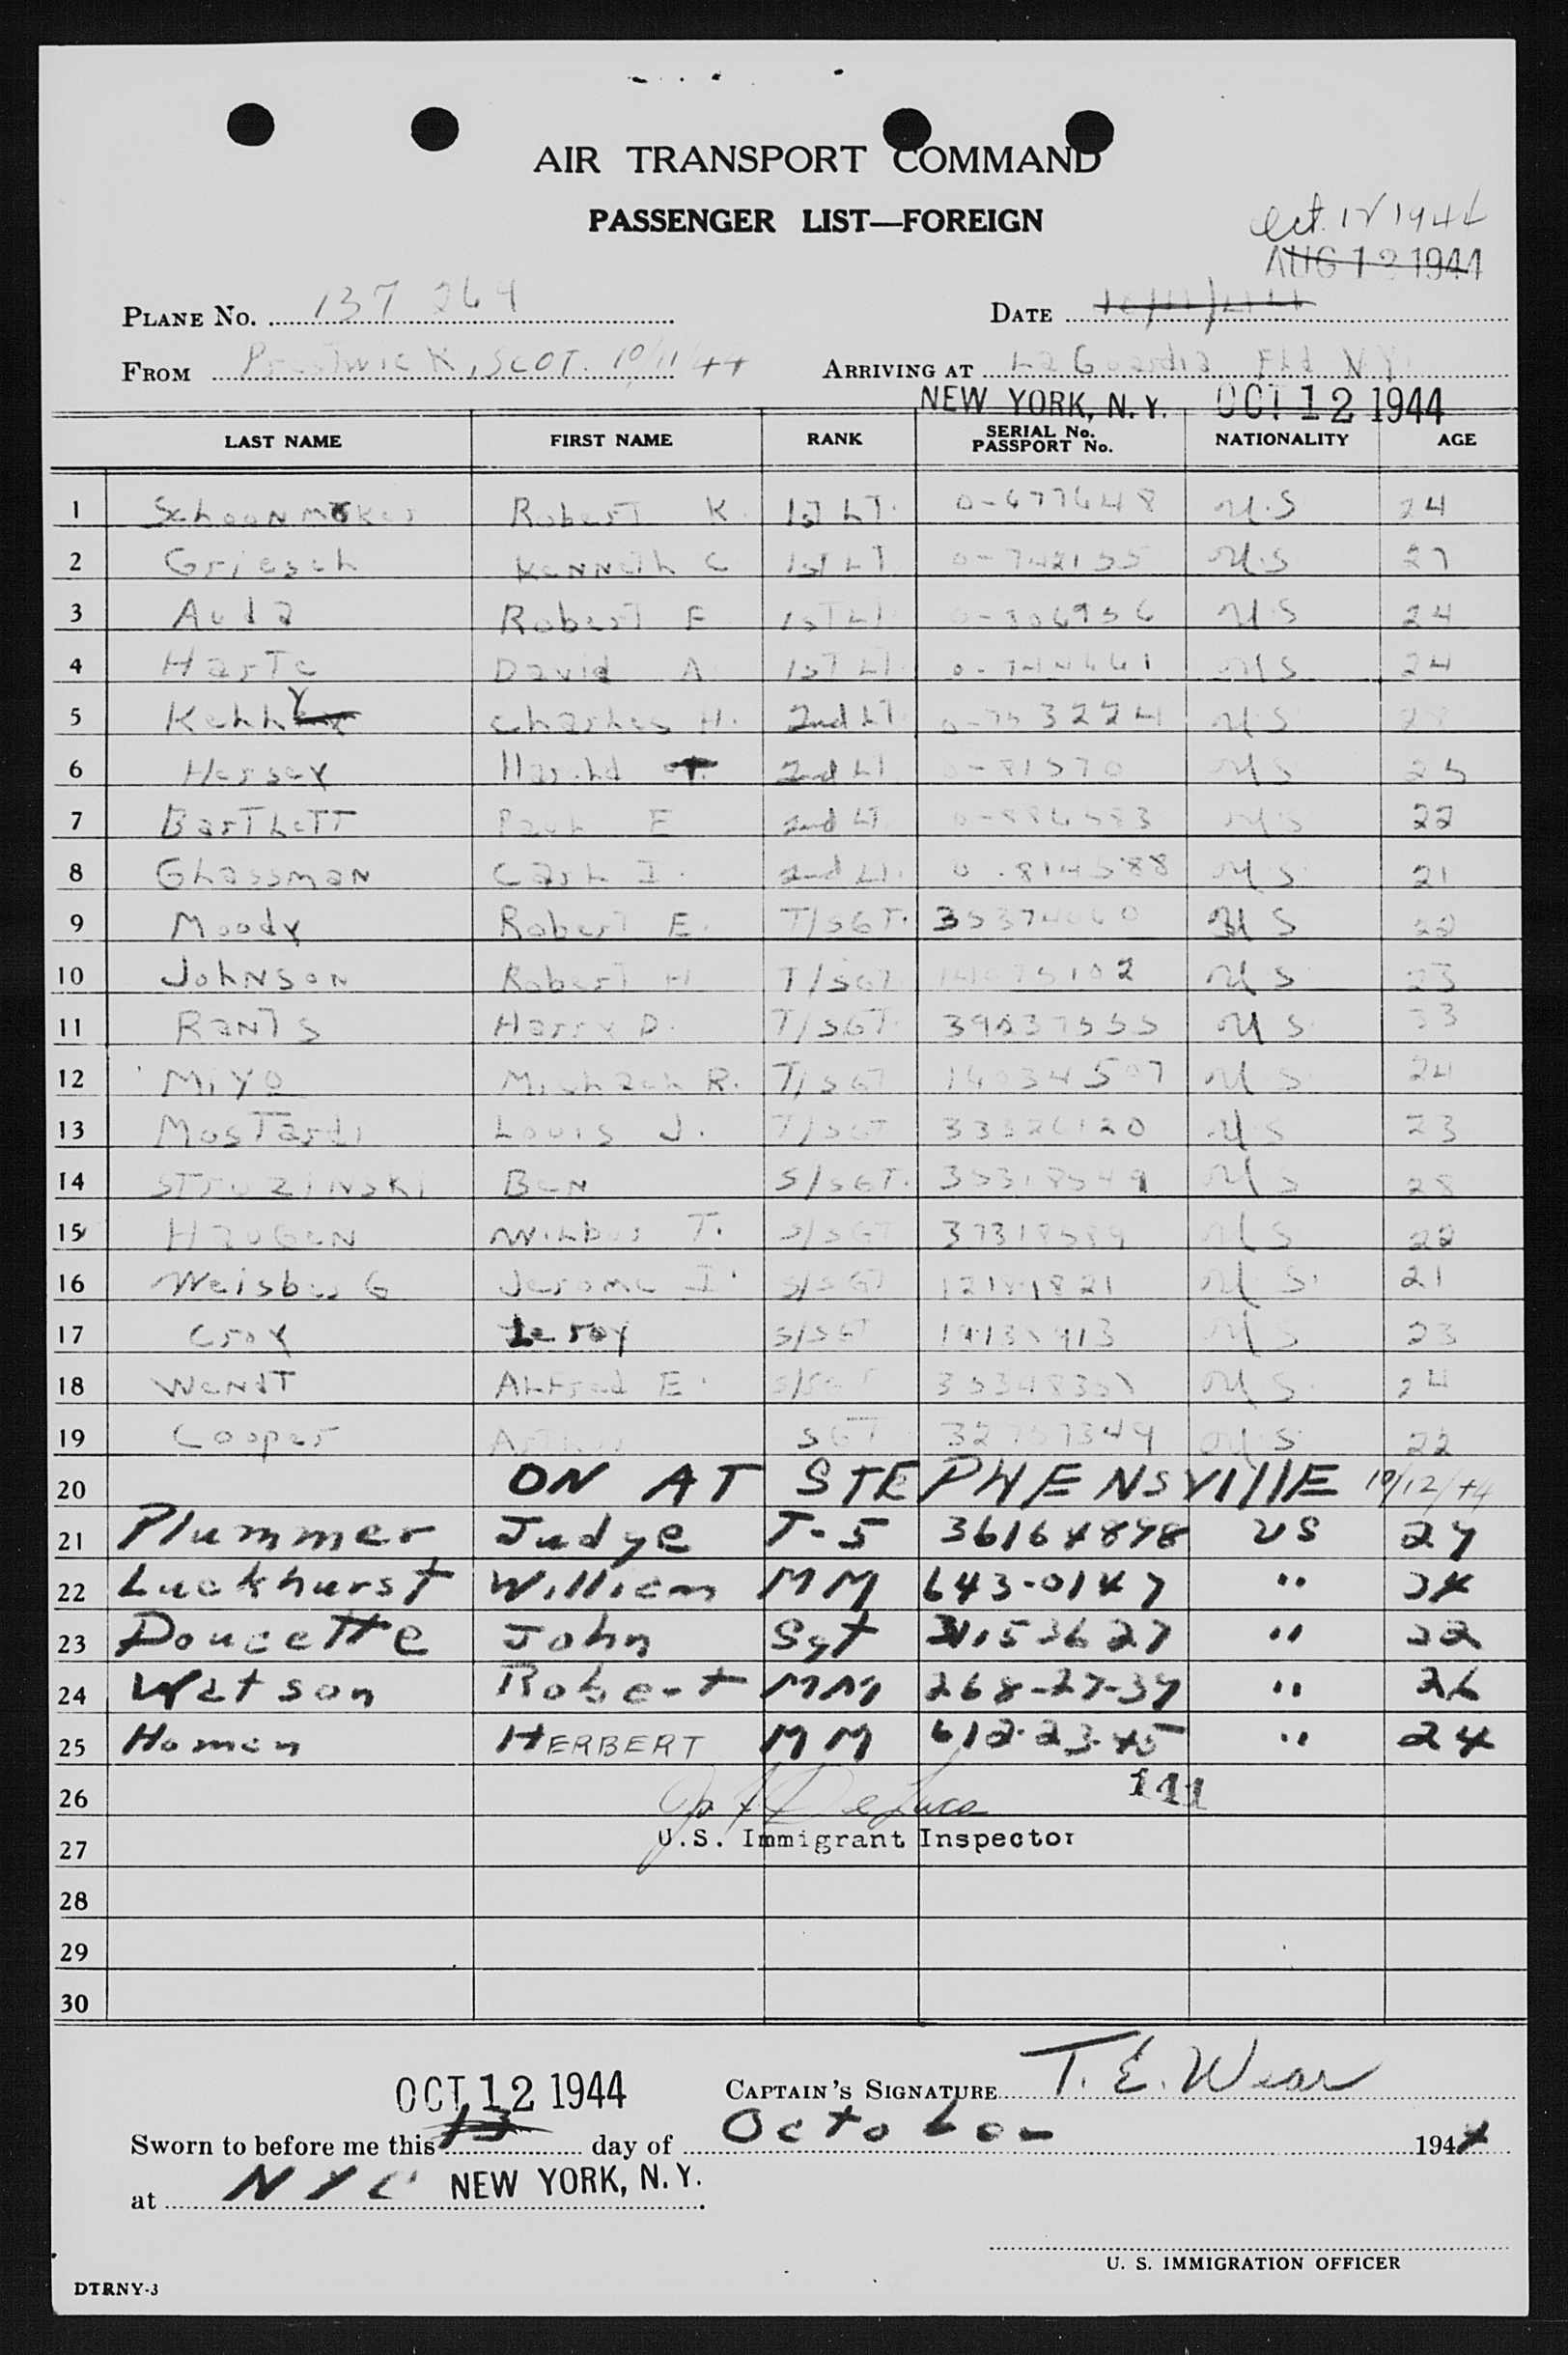 AIR TRANSPORT COMMAND
PASSENGER LIST—FOREIGN
Oct. 12 1944
AUG 12 1944
PLANE No. 137 269
DATE 10/11/44
FROM Prestwick, SCOT. 10/11/44
ARRIVING AT La Guardia Fld N.Y.
NEW YORK, N.Y. OCT 12 1944
LAST NAME FIRST NAME RANK SERIAL No. PASSPORT No. NATIONALITY AGE
1 Schoonmaker Robert K. 1ST LT. O-677648 U.S 24
2 Griesch Kenneth C 1ST LT O-742155 U.S 27
3 Auda Robert F 1ST LT U.S 24
4 Harte David A. 1ST LT. U.S 24
5 Kelly Charles H. 2nd LT. U.S 28
6 Hersey Harold 2nd LT. O-81570 U.S
7 Bartlett Paul E 2nd LT. U.S 22
8 Glassman Carl I. 2nd LT. O-814588 U.S. 21
9 Moody Robert E. T/SGT. U.S 22
10 Johnson Robert H T/SGT U.S 23
11 Rants Harry D. T/SGT. 39537555 U.S. 33
12 Miyo Michael R. T/SGT 16034507 U.S 24
13 Mostardi Louis J. T/SGT 33326120 U.S 23
14 STruzinski Ben S/SGT. 35318549 U.S 28
15 Haugen Wilbur T. S/SGT 37318589 U.S 22
16 Weisberg Jerome I. S/SGT U.S. 21
17 Croy Leroy S/SGT U.S 23
18 Wendt Alfred E. S/SGT U.S. 24
19 Cooper Arthur SGT U.S. 22
20 ON AT STEPHENSVILLE 10/12/44
21 Plummer Judge T-5 36164898 US 27
22 Luckhurst William MM 643-0147 " 24
23 Doucette John Sgt 31153627 " 22
24 Watson Robert MM 268-27-37 " 26
25 Homen HERBERT MM 612-23-45 " 24
26 111
27 U.S. Immigrant Inspector
28
29
30
OCT 12 1944
CAPTAIN'S SIGNATURE T. E. Wear
Sworn to before me this 13 day of October 1944
at NYC NEW YORK, N.Y.
U. S. IMMIGRATION OFFICER
DTRNY-3